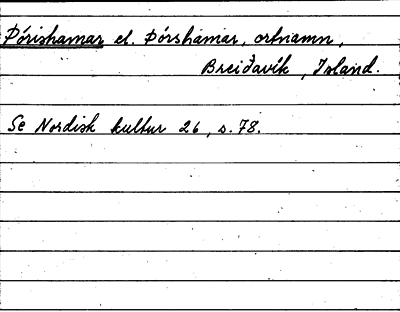 Þórishamar el. Þórshamar, ortnamn,
Breiðavík, Island.
Se Nordisk kultur 26, s. 78.